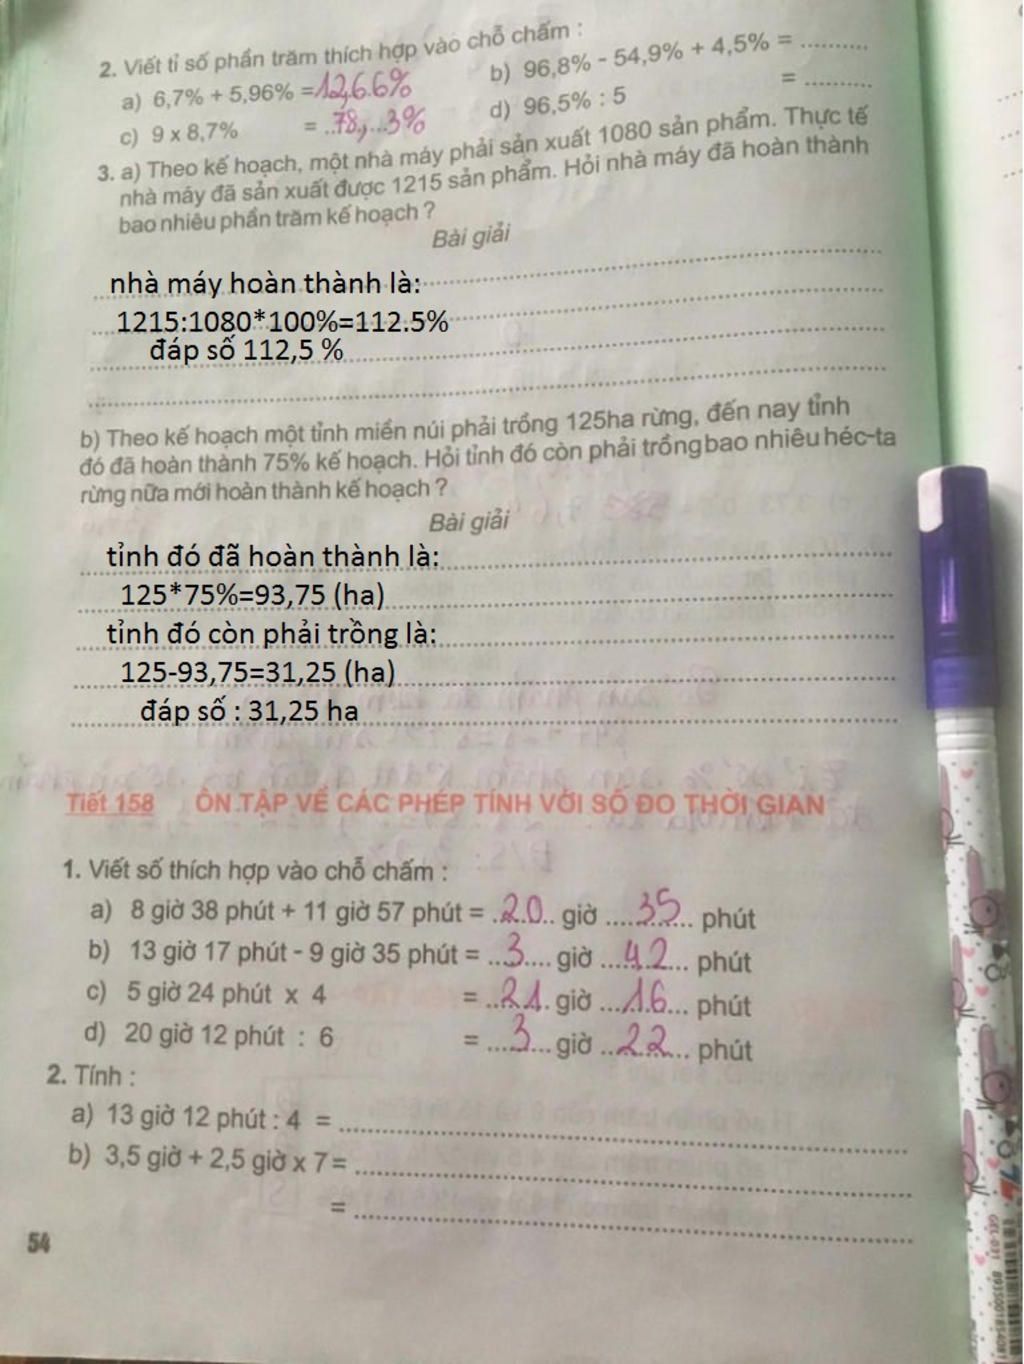 2. Viết tỉ số phần trăm thích hợp vào chỗ chấm :
a) 6,7% + 5,96% = 12,66% b) 96,8% - 54,9% + 4,5% = ..........
c) 9 x 8,7% = ..78,...3% d) 96,5% : 5 = ..........
3. a) Theo kế hoạch, một nhà máy phải sản xuất 1080 sản phẩm. Thực tế
nhà máy đã sản xuất được 1215 sản phẩm. Hỏi nhà máy đã hoàn thành
bao nhiêu phần trăm kế hoạch ?
Bài giải
nhà máy hoàn thành là:
1215:1080*100%=112.5%
đáp số 112,5 %
b) Theo kế hoạch một tỉnh miền núi phải trồng 125ha rừng, đến nay tỉnh
đó đã hoàn thành 75% kế hoạch. Hỏi tỉnh đó còn phải trồng bao nhiêu héc-ta
rừng nữa mới hoàn thành kế hoạch ?
Bài giải
tỉnh đó đã hoàn thành là:
125*75%=93,75 (ha)
tỉnh đó còn phải trồng là:
125-93,75=31,25 (ha)
đáp số : 31,25 ha
Tiết 158 ÔN TẬP VỀ CÁC PHÉP TÍNH VỚI SỐ ĐO THỜI GIAN
1. Viết số thích hợp vào chỗ chấm :
a) 8 giờ 38 phút + 11 giờ 57 phút = ..20.. giờ ....35.. phút
b) 13 giờ 17 phút - 9 giờ 35 phút = ...3.... giờ ...42... phút
c) 5 giờ 24 phút x 4 = ..21. giờ ...16... phút
d) 20 giờ 12 phút : 6 = ....3... giờ ..22... phút
2. Tính :
a) 13 giờ 12 phút : 4 = ..........
b) 3,5 giờ + 2,5 giờ x 7 = ..........
= ..........
54